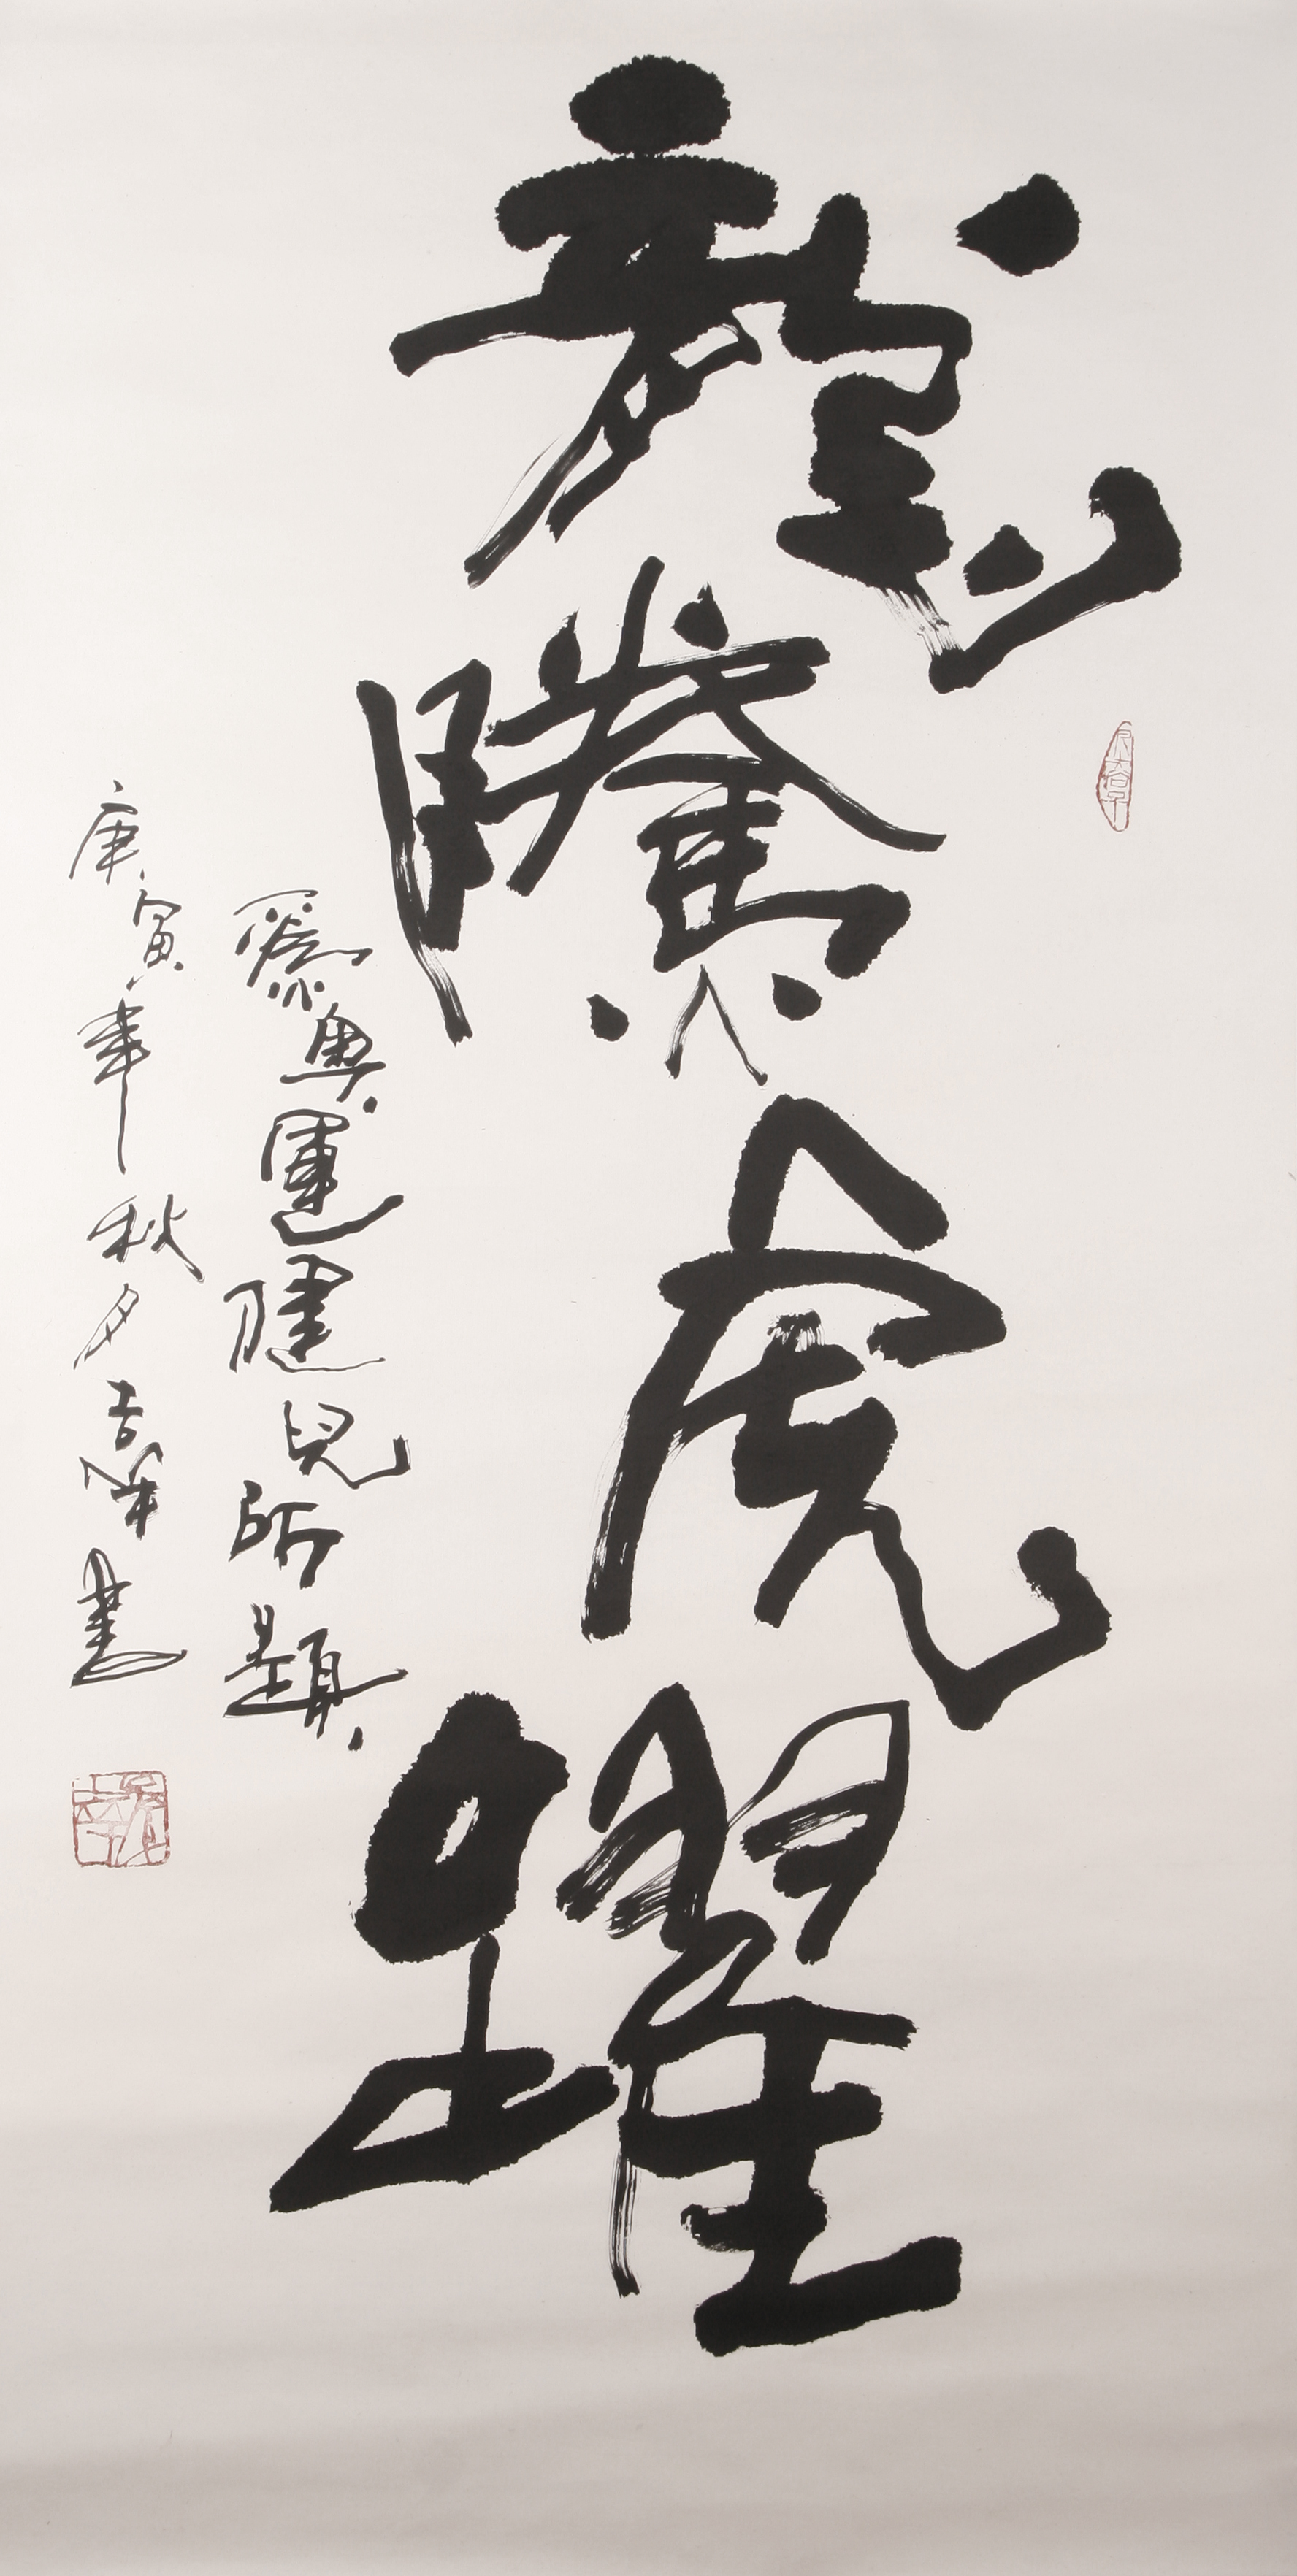 龍騰虎躍
為奧運健兒所題
庚寅年秋夕吉